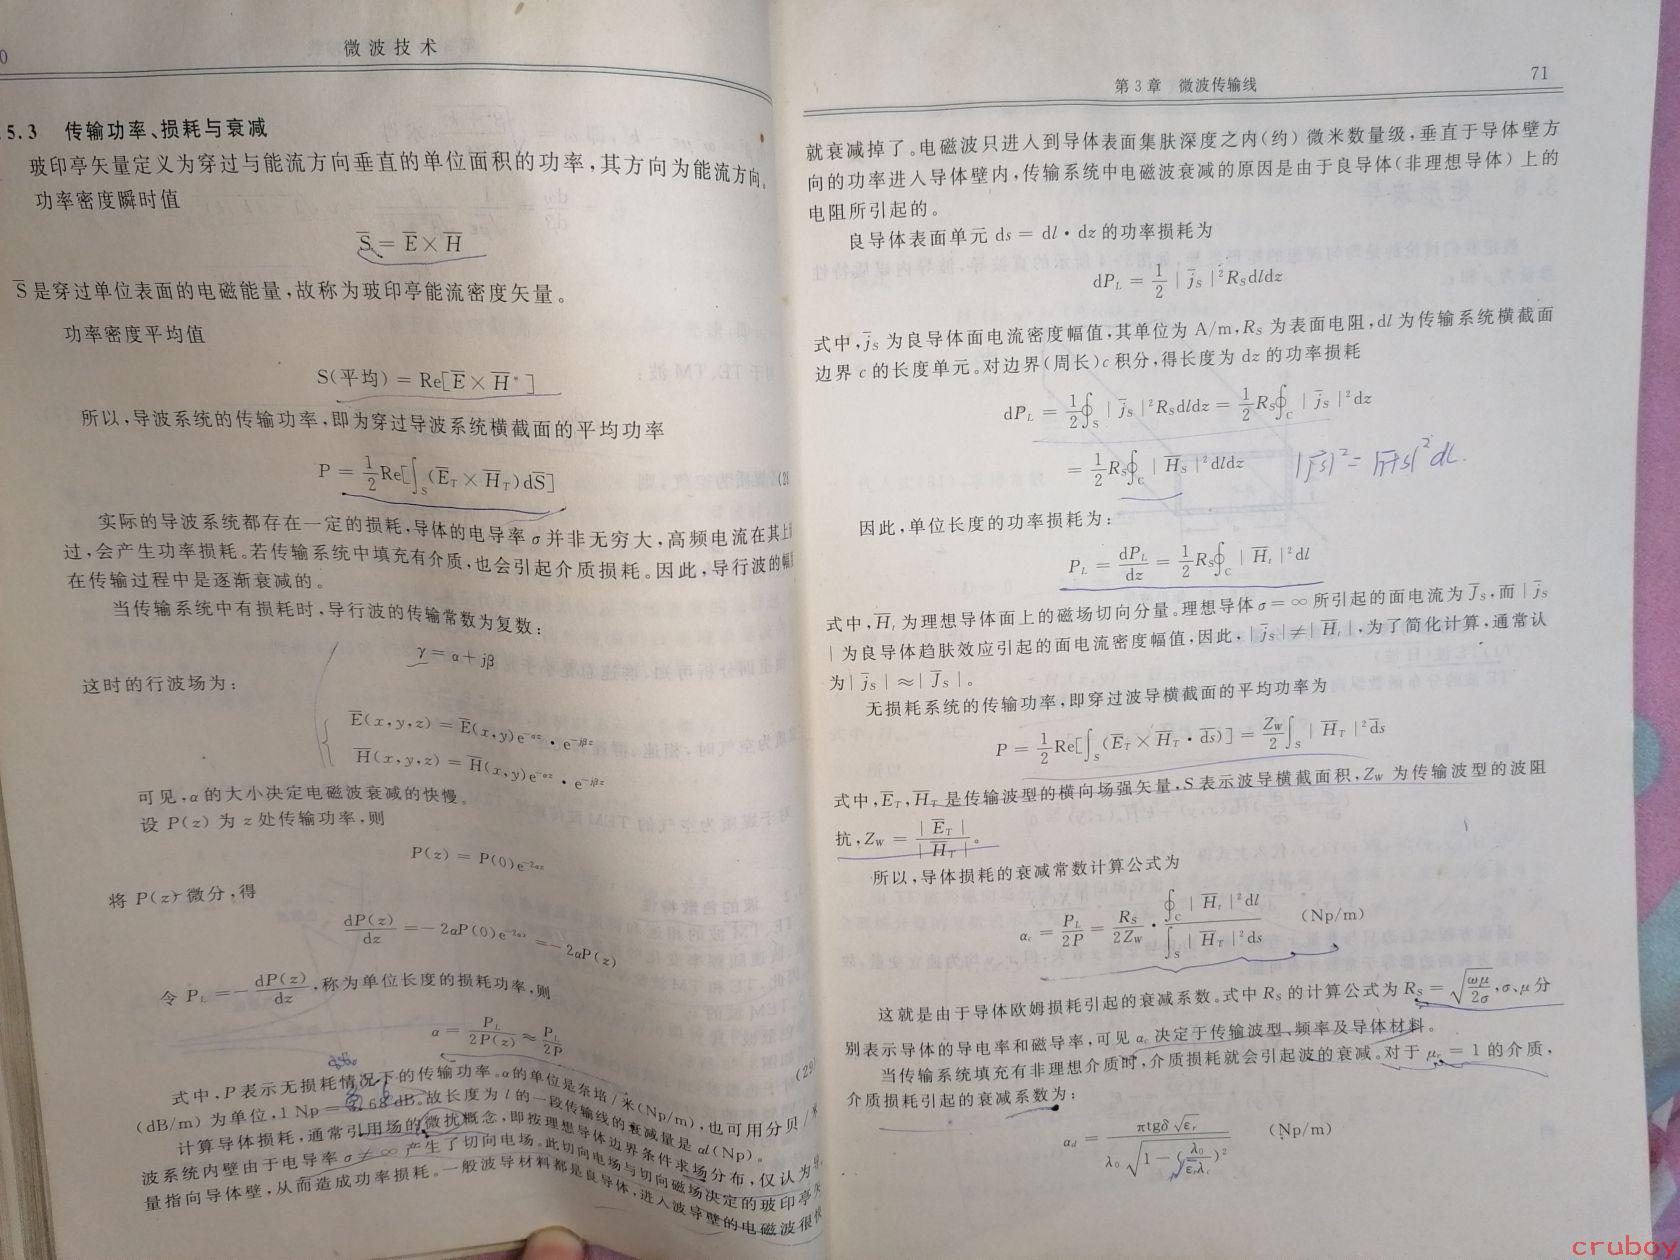 0
微波技术
5.3 传输功率、损耗与衰减
玻印亭矢量定义为穿过与能流方向垂直的单位面积的功率,其方向为能流方向。
功率密度瞬时值
S̅ = E̅×H̅
S̅是穿过单位表面的电磁能量,故称为玻印亭能流密度矢量。
功率密度平均值
S(平均) = Re[E̅×H̅*]
所以,导波系统的传输功率,即为穿过导波系统横截面的平均功率
P = 1/2 Re[∫_S (E̅_T×H̅_T)dS̅] (28
实际的导波系统都存在一定的损耗,导体的电导率σ并非无穷大,高频电流在其上
过,会产生功率损耗。若传输系统中填充有介质,也会引起介质损耗。因此,导行波的幅
在传输过程中是逐渐衰减的。
当传输系统中有损耗时,导行波的传输常数为复数:
γ = α+jβ
这时的行波场为:
E̅(x,y,z) = E̅(x,y)e^{-αz}·e^{-jβz}
H̅(x,y,z) = H̅(x,y)e^{-αz}·e^{-jβz}
可见,α的大小决定电磁波衰减的快慢。
设 P(z) 为 z 处传输功率,则
P(z) = P(0)e^{-2αz}
将 P(z) 微分,得
dP(z)/dz = -2αP(0)e^{-2αz} = -2αP(z)
令 P_L = -dP(z)/dz,称为单位长度的损耗功率,则
α = P_L/2P(z) ≈ P_L/2P (29)
式中,P表示无损耗情况下的传输功率。α的单位是奈培/米(Np/m),也可用分贝/米
(dB/m) 为单位,1 Np = 8.68dB。故长度为 l 的一段传输线的衰减量是 αl(Np)。
计算导体损耗,通常引用场的微扰概念,即按理想导体边界条件求场分布,仅认为导
波系统内壁由于电导率σ≠∞产生了切向电场。此切向电场与切向磁场决定的玻印亭矢
量指向导体壁,从而造成功率损耗。一般波导材料都是良导体,进入波导壁的电磁波很快
第3章 微波传输线
71
就衰减掉了。电磁波只进入到导体表面集肤深度之内(约) 微米数量级,垂直于导体壁方
向的功率进入导体壁内,传输系统中电磁波衰减的原因是由于良导体(非理想导体) 上的
电阻所引起的。
良导体表面单元 ds = dl·dz 的功率损耗为
dP_L = 1/2 |j̅_S|²R_S dldz
式中,j̅_S 为良导体面电流密度幅值,其单位为 A/m,R_S 为表面电阻,dl 为传输系统横截面
边界 c 的长度单元。对边界(周长)c 积分,得长度为 dz 的功率损耗
dP_L = 1/2 ∮_S |j̅_S|²R_S dldz = 1/2 R_S∮_C |j̅_S|²dz
= 1/2 R_S∮_C |H̅_S|²dldz |j̅s|² = |H̅s|²dl.
因此,单位长度的功率损耗为:
P_L = dP_L/dz = 1/2 R_S∮_C |H̅_t|²dl
式中,H̅_t 为理想导体面上的磁场切向分量。理想导体 σ = ∞ 所引起的面电流为 J̅_S,而 | j̅_S
| 为良导体趋肤效应引起的面电流密度幅值,因此,|j̅_S|≠|H̅_t|,为了简化计算,通常认
为|j̅_S|≈|J̅_S|。
无损耗系统的传输功率,即穿过波导横截面的平均功率为
P = 1/2 Re[∫_S (E̅_T×H̅_T·d̅s̅)] = Z_W/2 ∫_S |H̅_T|²d̅s
式中,E̅_T,H̅_T 是传输波型的横向场强矢量,S 表示波导横截面积,Z_W 为传输波型的波阻
抗,Z_W = |E̅_T|/|H̅_T|。
所以,导体损耗的衰减常数计算公式为
α_c = P_L/2P = R_S/2Z_W · ∮_C |H̅_t|²dl / ∫_S |H̅_T|²ds (Np/m)
这就是由于导体欧姆损耗引起的衰减系数。式中 R_S 的计算公式为 R_S = √(ωμ/2σ),σ、μ 分
别表示导体的导电率和磁导率,可见 α_c 决定于传输波型、频率及导体材料。
当传输系统填充有非理想介质时,介质损耗就会引起波的衰减。对于 μ_r = 1 的介质,
介质损耗引起的衰减系数为:
α_d = πtgδ√ε_r / λ_0√(1-(λ_0/√ε_r λ_c)²) (Np/m)
cruboy